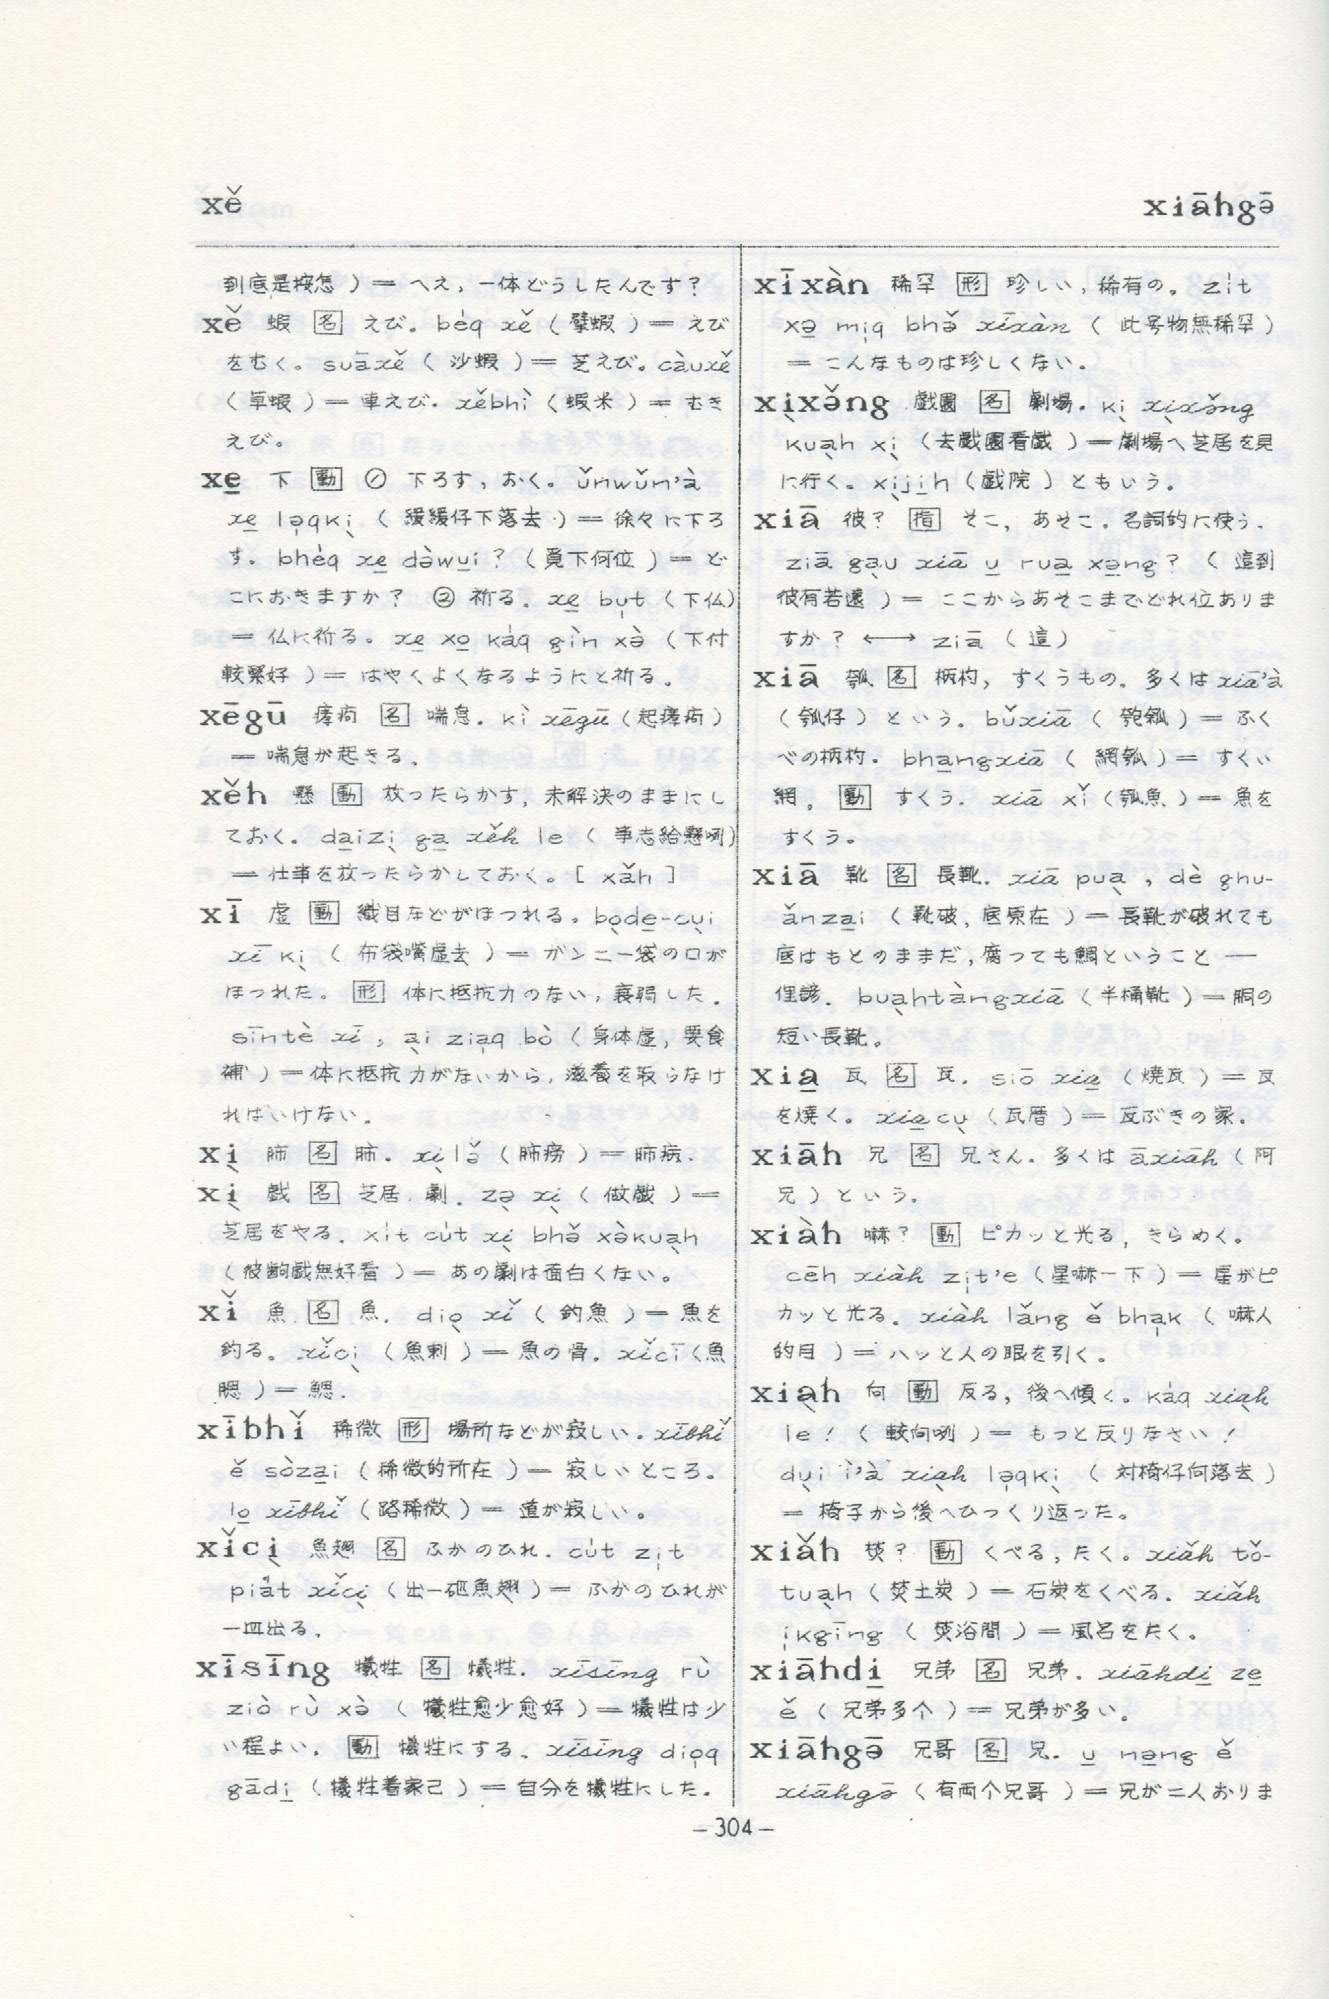 xě
xiāhgə̄
到底是按怎）＝ へえ，一体どうしたんです？
xě 蝦 [名] えび。béq xě（擘蝦）＝ えび
をむく。suāxě（沙蝦）＝ 芝えび。càuxě
（草蝦）＝ 車えび．xěbhì（蝦米）＝ むき
えび。
xe̲ 下 [動] ① 下ろす，おく。ǔnwǔn'à
xe̲ lə̣qkị（緩緩仔下落去）＝ 徐々に下ろ
す。bhéq xe̲ də̀wu̲i?（覓下何位）＝ ど
こにおきますか？ ② 祈る。xe̲ bụt（下仏）
＝ 仏に祈る。xe̲ xo̲ káq gìn xə̀（下付
較緊好）＝ はやくよくなるようにと祈る．
xēgū 痚疴 [名] 喘息．kì xēgū（起痚疴）
＝ 喘息が起きる．
xěh 懸 [動] 放ったらかす，未解決のままにし
ておく。da̲izị ga̲ xěh le（事志給懸咧）
＝ 仕事を放ったらかしておく。[ xǎh ]
xī 虚 [動] 織目などがほつれる。bọde̲-cụi
xī kị（布袋嘴虚去）＝ ガンニー袋の口が
ほつれた。[形] 体に抵抗力のない，衰弱した．
sīntè xī, ại ziạq bò（身体虚，要食
補）＝ 体に抵抗力がないから，滋養を取らなけ
ればいけない．
xị 肺 [名] 肺．xị lǒ（肺癆）＝ 肺病．
xị 戲 [名] 芝居．劇．zə̣ xị（做戲）＝
芝居をやる．xít cút xị bhə̌ xə̀kuạh
（彼齣戲無好看）＝ あの劇は面白くない。
xǐ 魚 [名] 魚．diọ xǐ（釣魚）＝ 魚を
釣る。xǐcị（魚刺）＝ 魚の骨．xǐcī（魚
腮）＝ 鰓．
xībhǐ 稀微 [形] 場所などが寂しい．xībhǐ
ě sòza̲i（稀微的所在）＝ 寂しいところ。
lo̲ xībhǐ（路稀微）＝ 道が寂しい。
xǐcị 魚翅 [名] ふかのひれ．cút zịt
piát xǐcị（出一𥐵魚翅）＝ ふかのひれが
一皿出る．
xīsīng 犠牲 [名] 犠牲．xīsīng rù
ziò rù xə̀（犠牲愈少愈好）＝ 犠牲は少
い程よい．[動] 犠牲にする．xīsīng diọq
gādị（犠牲着家己）＝ 自分を犠牲にした．
xīxàn 稀罕 [形] 珍しい，稀有の。zịt
xə̲ mịq bhə̌ xīxàn（此号物無稀罕）
＝ こんなものは珍しくない．
xịxə̌ng 戲園 [名] 劇場．kị xịxə̌ng
kuạh xị（去戲園看戲）＝ 劇場へ芝居を見
に行く。xịji̲h（戲院）ともいう。
xiā 彼? [指] そこ，あそこ．名詞的に使う．
ziā gạu xiā u̲ rua̲ xə̲ng?（這到
彼有若遠）＝ ここからあそこまでどれ位ありま
すか？ ←→ ziā（這）
xiā 瓠 [名] 柄杓，すくうもの．多くは xiā'à
（瓠仔）という．bǔxiā（匏瓠）＝ ふく
べの柄杓．bha̲ngxiā（網瓠）＝ すくい
網．[動] すくう．xiā xǐ（瓠魚）＝ 魚を
すくう。
xiā 靴 [名] 長靴．xiā puạ, dè ghu-
ǎnza̲i（靴破，底原在）＝ 長靴が破れても
底はもとのままだ，腐っても鯛ということ ――
俚諺．buạhtàngxiā（半桶靴）＝ 胴の
短い長靴。
xia̲ 瓦 [名] 瓦．siō xia̲（焼瓦）＝ 瓦
を焼く。xia̲cụ（瓦厝）＝ 瓦ぶきの家．
xiāh 兄 [名] 兄さん．多くは āxiāh（阿
兄）という。
xiàh 嚇? [動] ピカッと光る，きらめく。
cēh xiàh zịt'e（星嚇一下）＝ 星がピ
カッと光る．xiàh lǎng ě bhạk（嚇人
的目）＝ ハッと人の眼を引く。
xiạh 向 [動] 反る，後へ傾く。káq xiạh
le!（較向咧）＝ もっと反りなさい！
dụi ì'à xiạh lə̣qkị（対椅仔向落去）
＝ 椅子から後へひっくり返った。
xiǎh 焚? [動] くべる，たく。xiǎh tǒ-
tuạh（焚土炭）＝ 石炭をくべる．xiǎh
ịkgīng（焚浴間）＝ 風呂をたく。
xiāhdi̲ 兄弟 [名] 兄弟．xiāhdi̲ ze̲
ě（兄弟多个）＝ 兄弟が多い。
xiāhgə̄ 兄哥 [名] 兄．u̲ nə̲ng ě
xiāhgə̄（有両个兄哥）＝ 兄が二人おりま
－304－